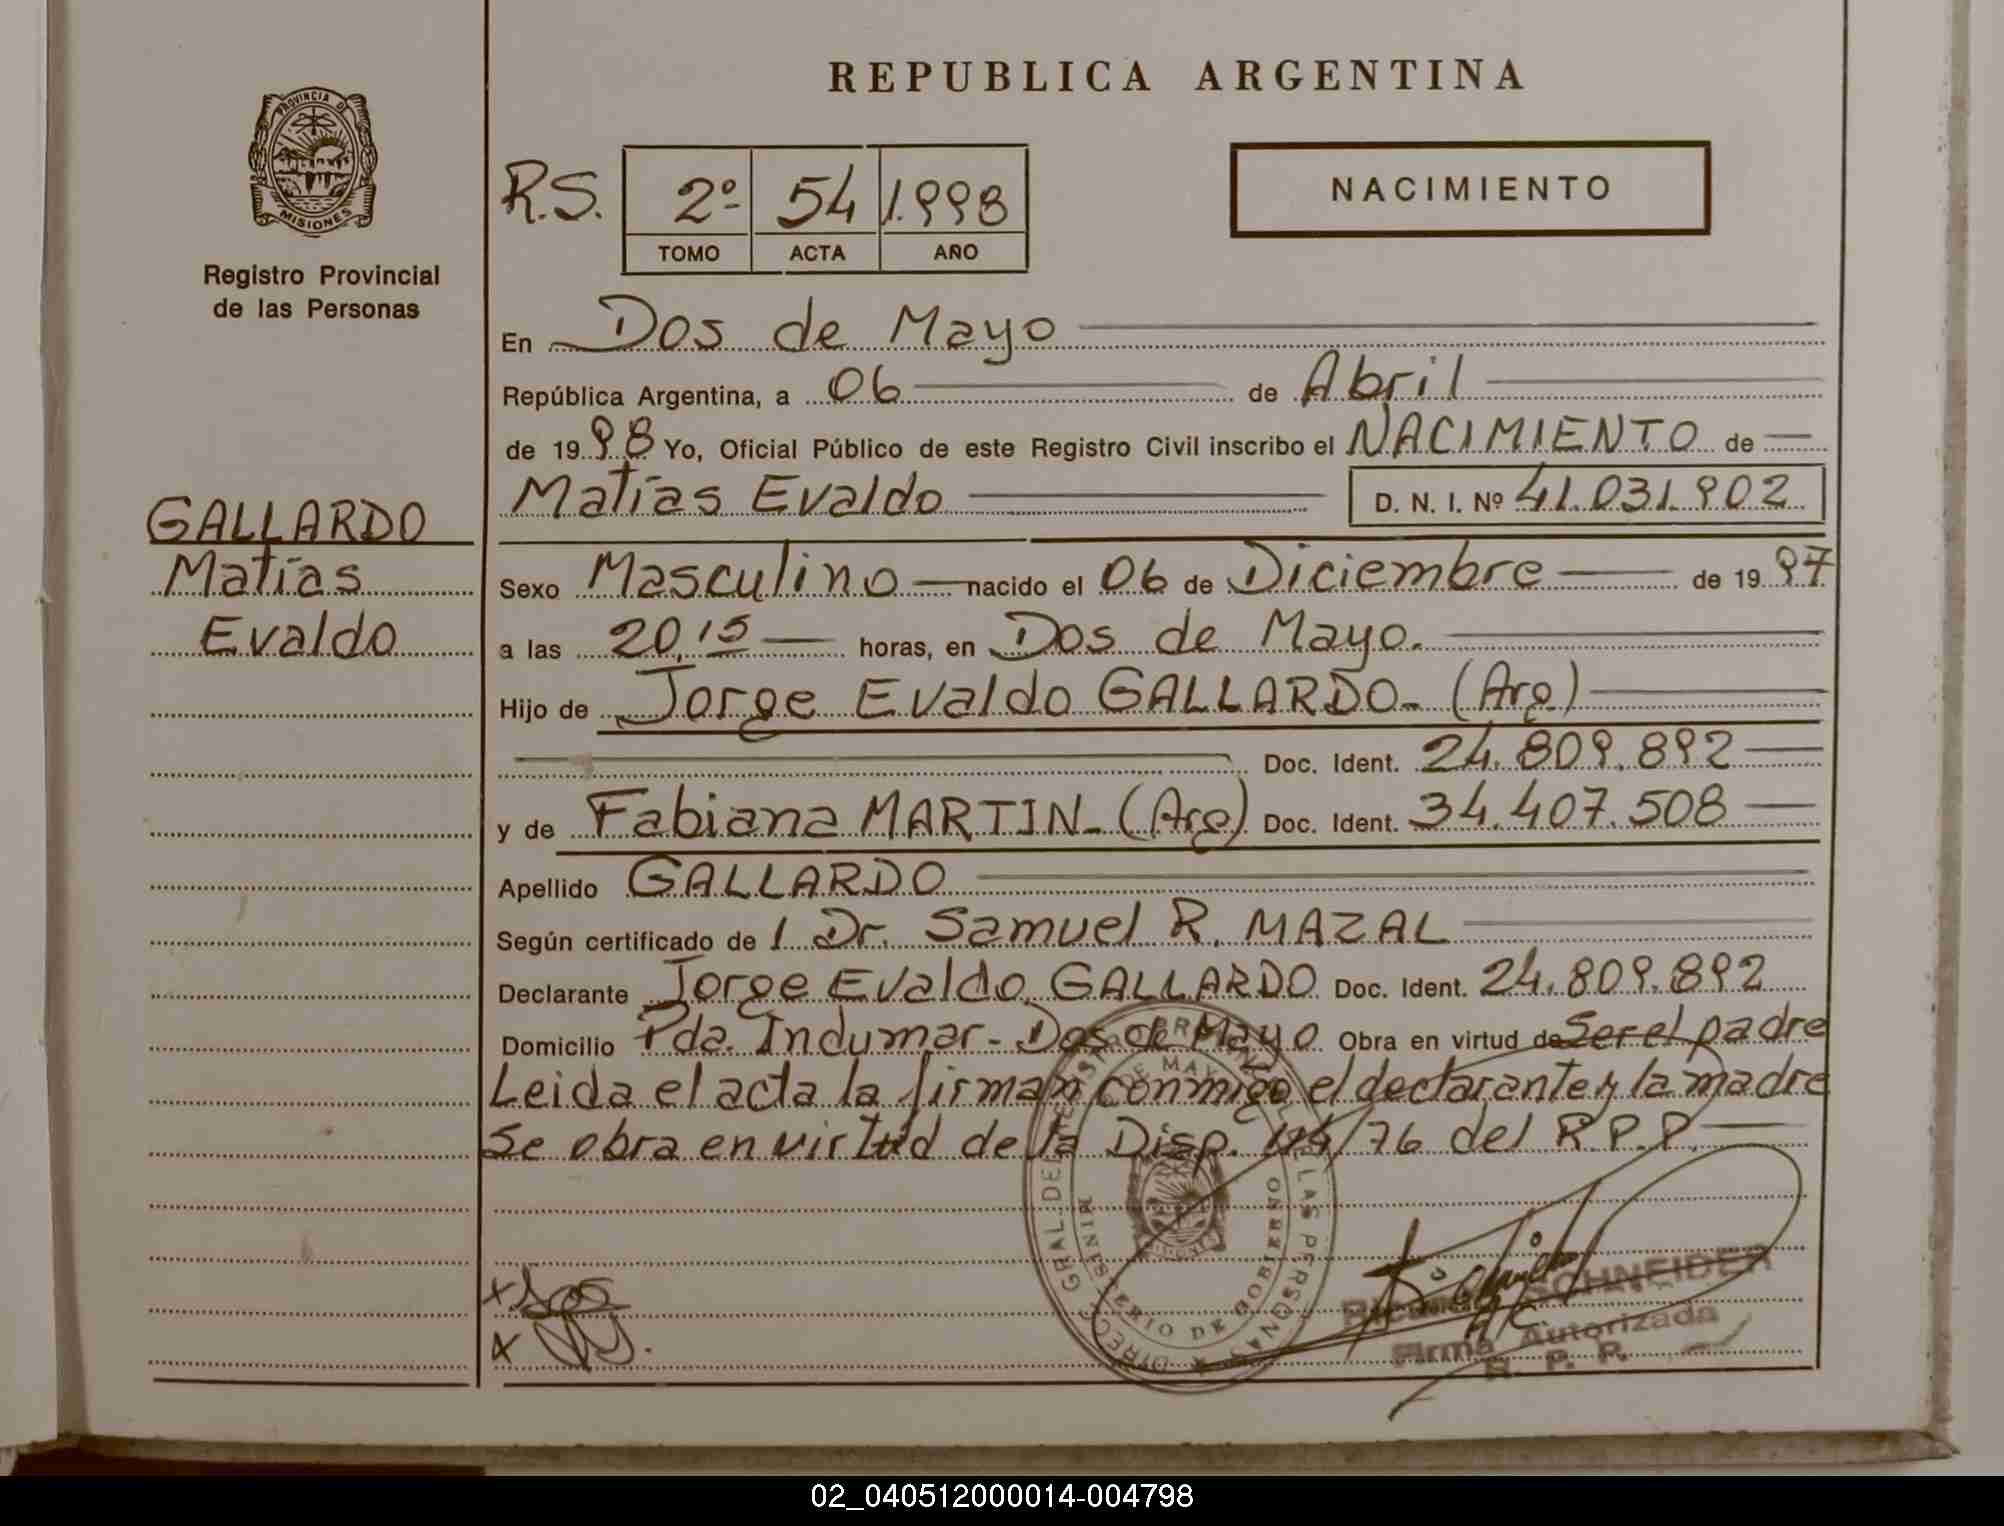 REPUBLICA ARGENTINA
PROVINCIA DE
MISIONES
Registro Provincial
de las Personas
R.S. 2º 54 1.998
TOMO ACTA AÑO
NACIMIENTO
En Dos de Mayo
República Argentina, a 06 de Abril
de 1998 Yo, Oficial Público de este Registro Civil inscribo el NACIMIENTO de
Matías Evaldo D. N. I. Nº 41.031.902
GALLARDO
Matías
Evaldo
Sexo Masculino nacido el 06 de Diciembre de 1997
a las 20,15 horas, en Dos de Mayo.
Hijo de Jorge Evaldo GALLARDO- (Arg)
Doc. Ident. 24.809.892
y de Fabiana MARTIN- (Arg) Doc. Ident. 34.407.508
Apellido GALLARDO
Según certificado de 1 Dr. Samuel R. MAZAL
Declarante Jorge Evaldo GALLARDO Doc. Ident. 24.809.892
Domicilio Pda. Indumar- Dos de Mayo Obra en virtud de Ser el padre
Leida el acta la firman conmigo el declarante y la madre
Se obra en virtud de la Disp. /76 del R.P.P.
MINISTERIO DE GOBIERNO
SCHNEIDER
Firma Autorizada
R. P. P.
02_040512000014-004798